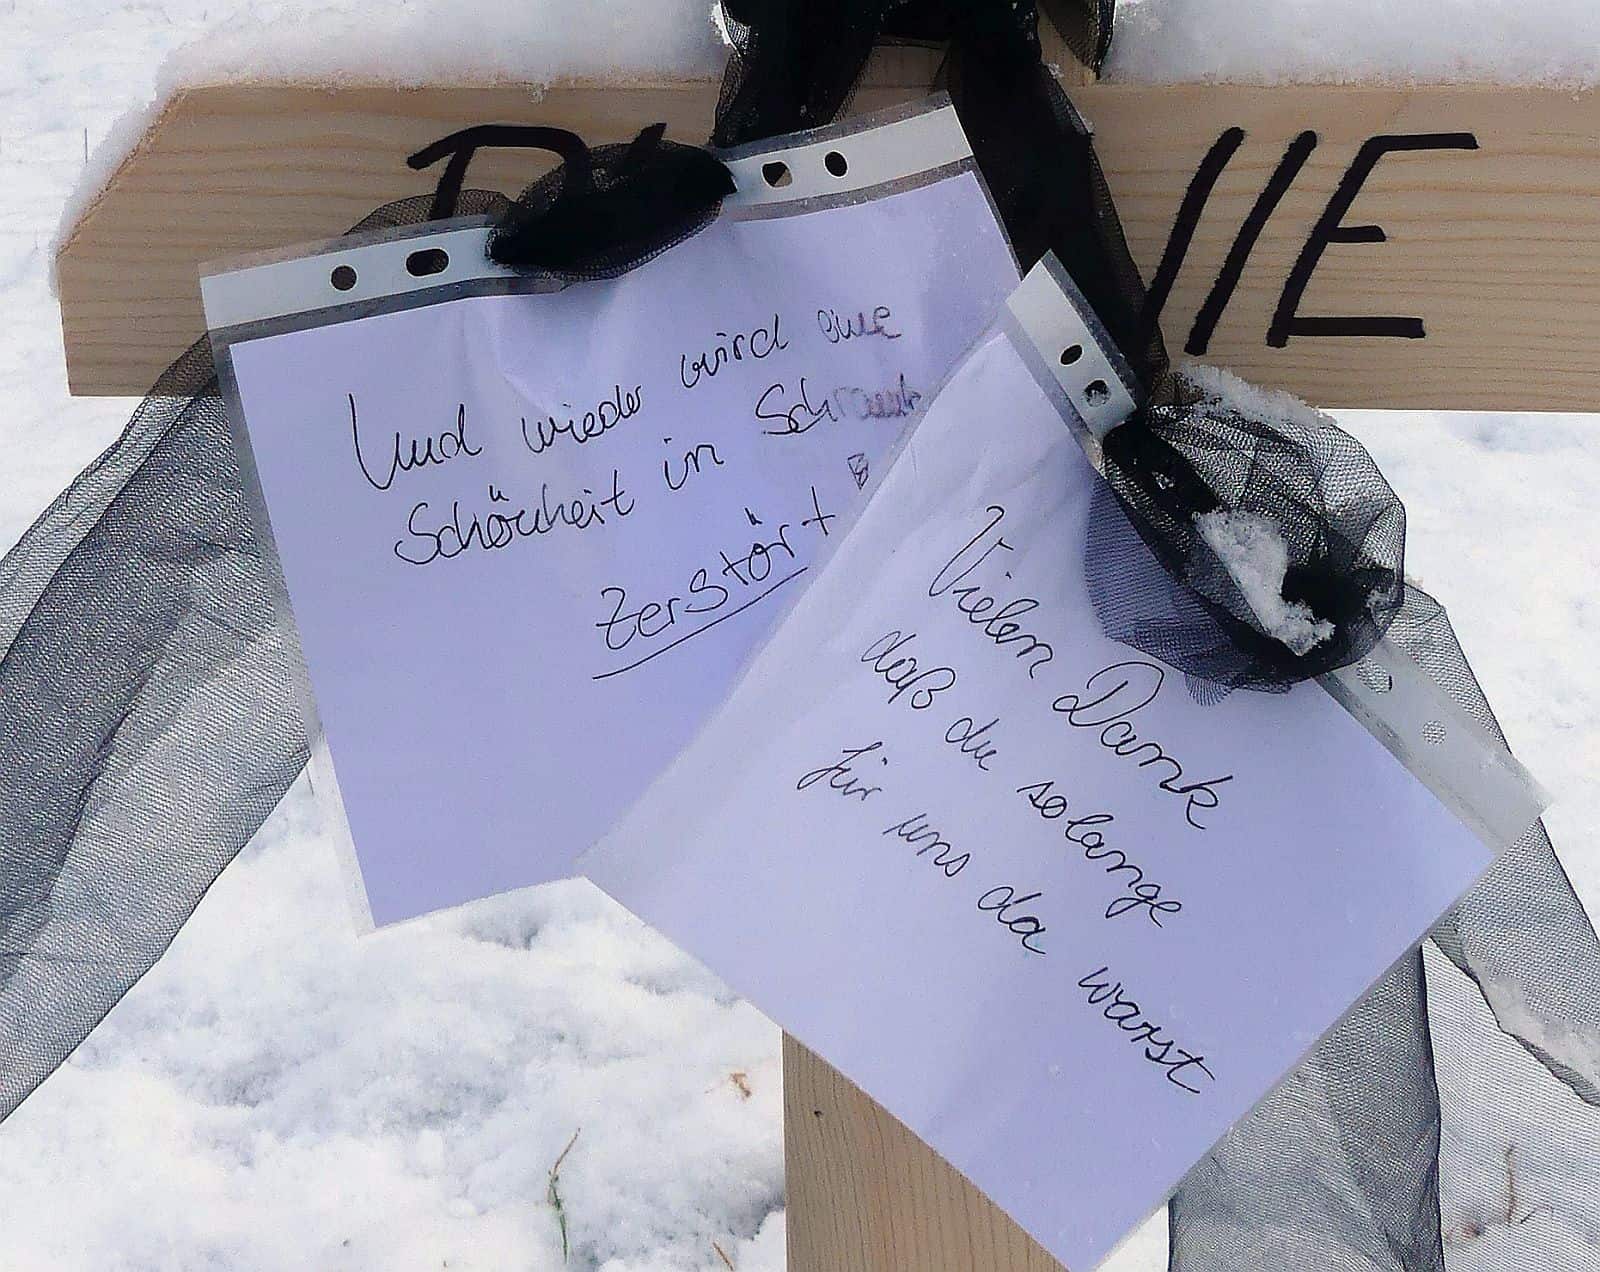 Und wieder wird eine
Schönheit in
Zerstört
Vielen Dank
daß du solange
für uns da warst